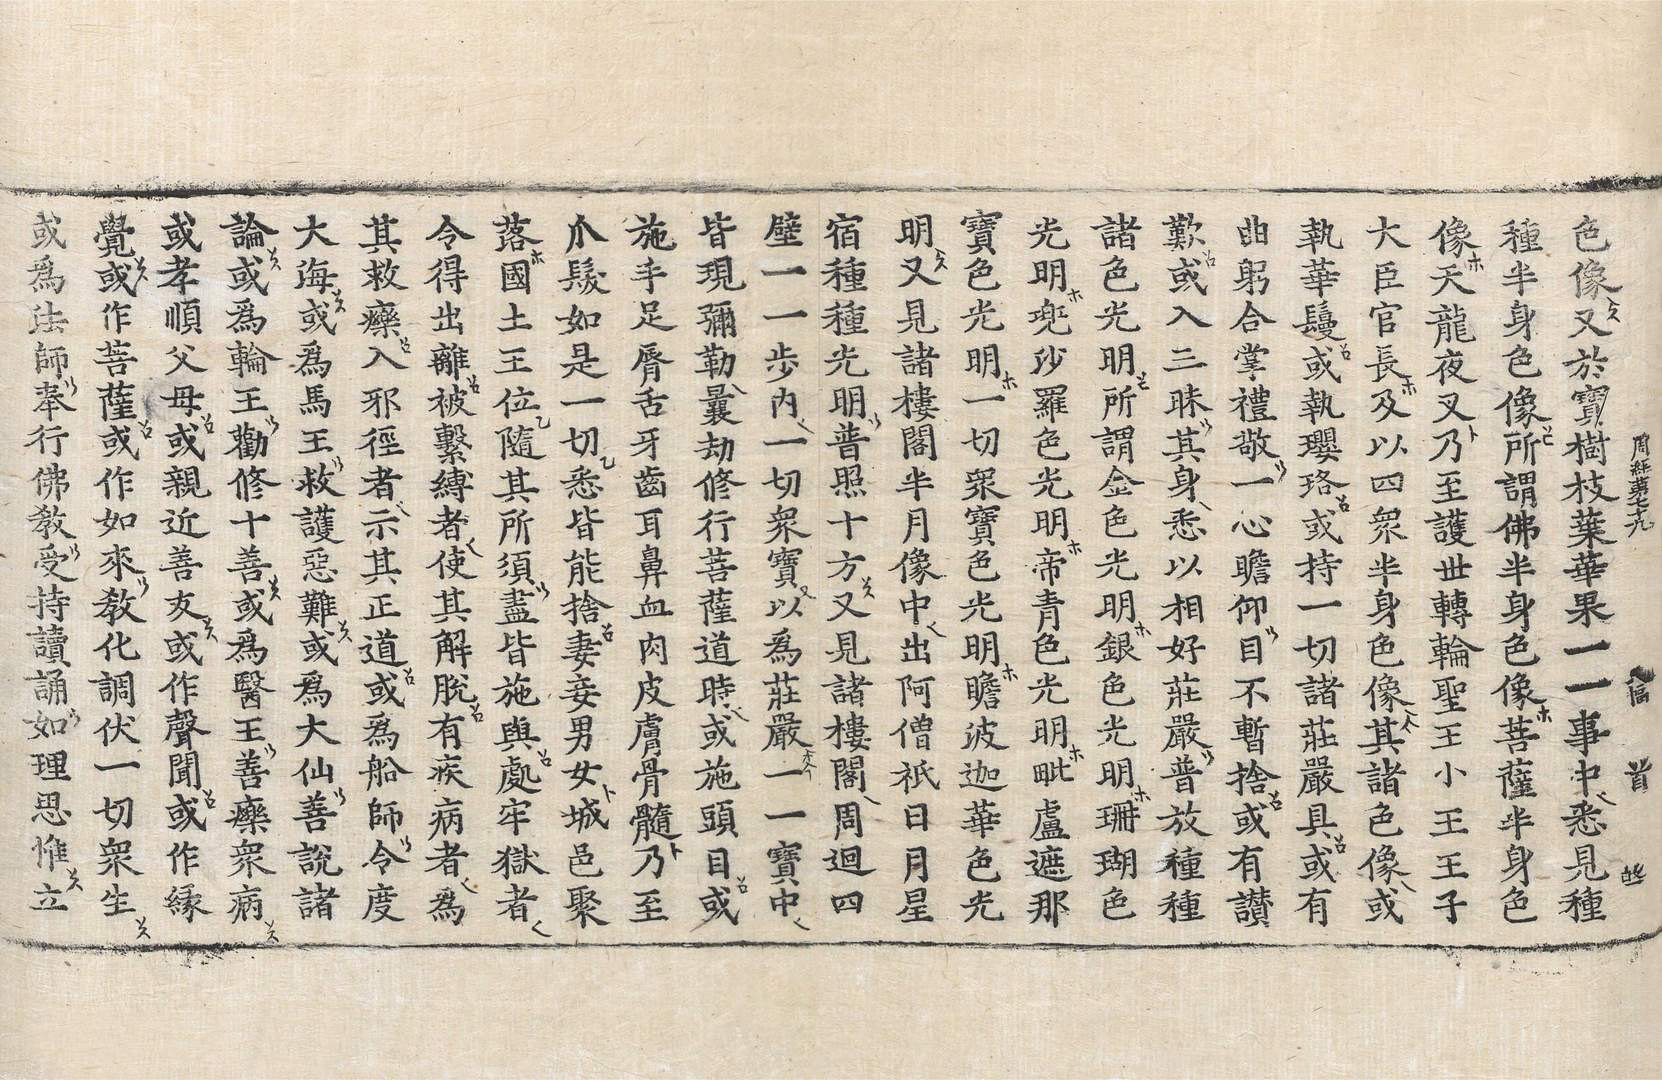 周經第七十九
色像又於寶樹枝葉華果一一事中悉見種
種半身色像所謂佛半身色像菩薩半身色
像天龍夜叉乃至護世轉輪聖王小王王子
大臣官長及以四衆半身色像其諸色像或
執華鬘或執瓔珞或持一切諸莊嚴具或有
曲躬合掌禮敬一心瞻仰目不暫捨或有讃
歎或入三昧其身悉以相好莊嚴普放種種
諸色光明所謂金色光明銀色光明珊瑚色
光明兜沙羅色光明帝青色光明毗盧遮那
寶色光明一切衆寶色光明瞻波迦華色光
明又見諸樓閣半月像中出阿僧祇日月星
宿種種光明普照十方又見諸樓閣周迴四
壁一一步內一切衆寶以爲莊嚴一一寶中
皆現彌勒曩劫修行菩薩道時或施頭目或
施手足脣舌牙齒耳鼻血肉皮膚骨髓乃至
爪髮如是一切悉皆能捨妻妾男女城邑聚
落國土王位隨其所須盡皆施與處牢獄者
令得出離被繫縛者使其解脫有疾病者爲
其救療入邪徑者示其正道或爲船師令度
大海或爲馬王救護惡難或爲大仙善說諸
論或爲輪王勸修十善或爲醫王善療衆病
或孝順父母或親近善友或作聲聞或作縁
覺或作菩薩或作如來敎化調伏一切衆生
或爲法師奉行佛敎受持讀誦如理思惟立